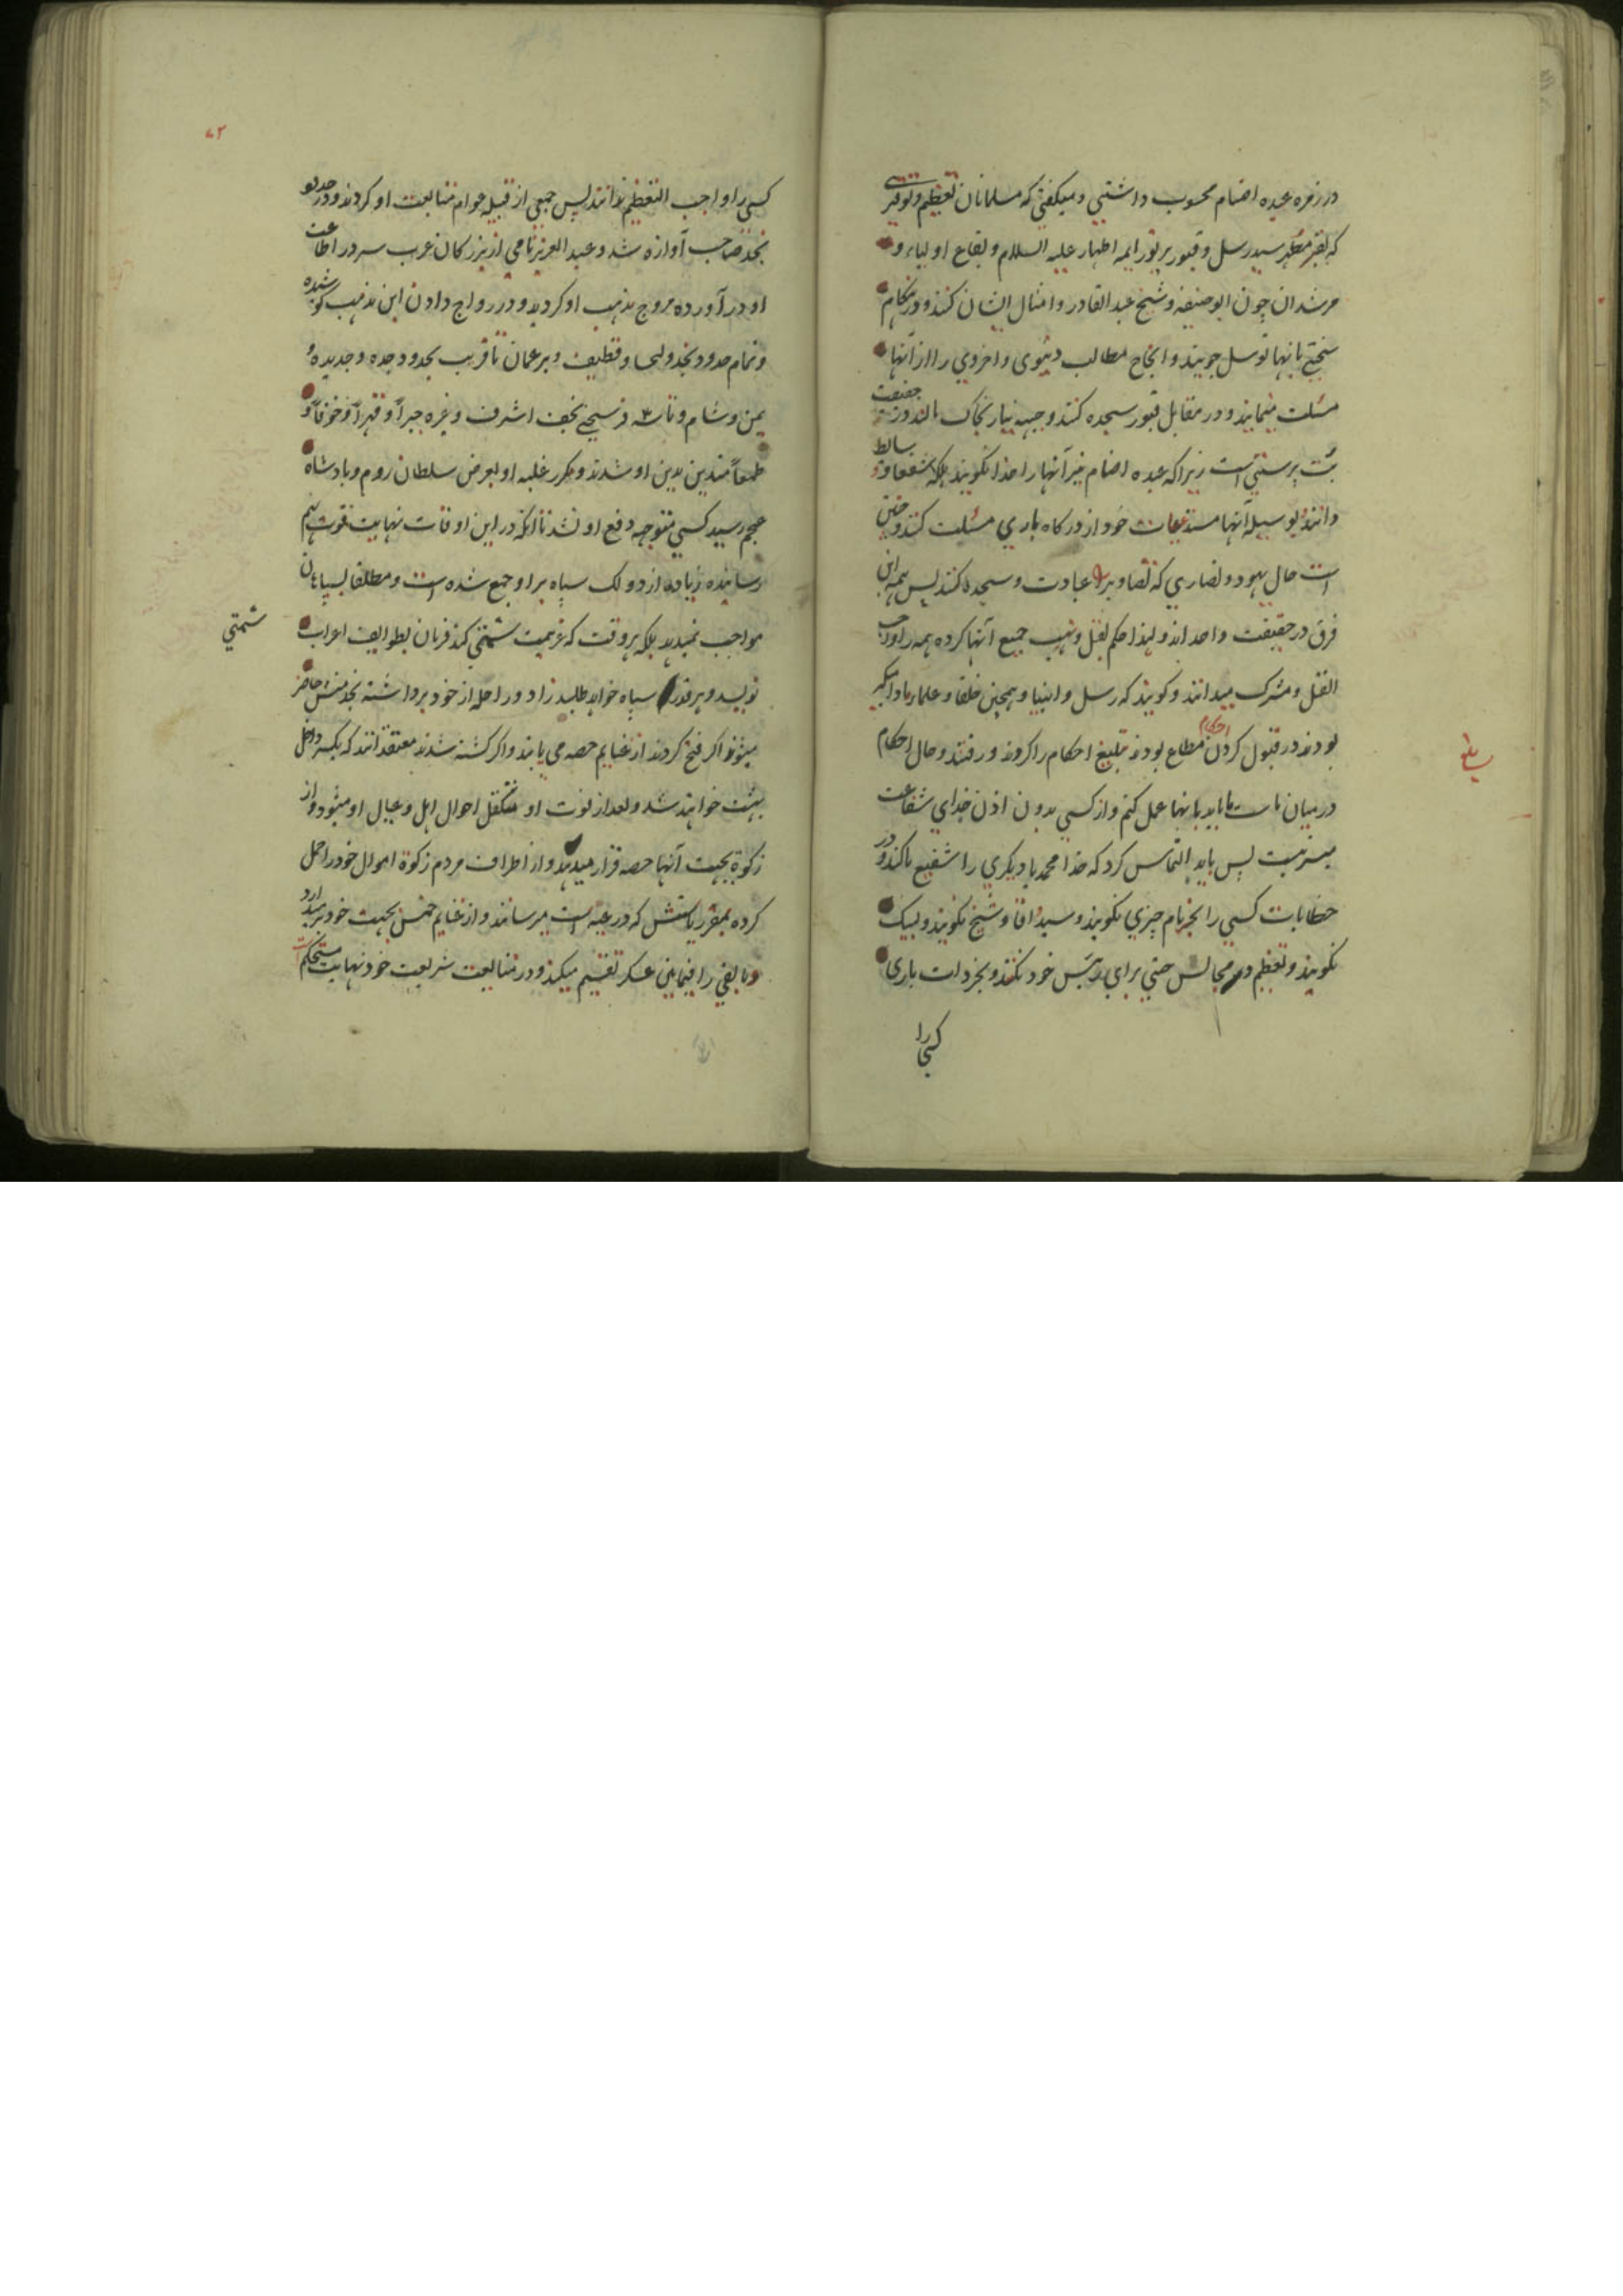 در زمره عبده اصنام محسوب داشتی و میگفتی که مسلمانان تعظیم و توقیری
که بقبر مطهر سید رسل و قبور پر نور ایمه اطهار علیه السلام و بقاع اولیاء و
مرشدان چون ابوحنیفه و شیخ عبد القادر و امثال ایشان کنند و در هنکام
سختی بانها توسل جویند و انجاح مطالب دنیوی و اخروی را از آنها
مسئلت مینمایند و در مقابل قبور سجده کنند و جبهه نیاز بخاک مالند در حقیقت
بت پرستی است زیرا که عبده اصنام نیز آنها را خدا نکویند بلکه شفعا و وسایط
دانند و بوسیله آنها مستدعیات خود از درکاه باری مسئلت کنند و چنین
است حال یهود و نصاری که تصاویر را عبادت و سجده کنند پس همه این
فرق در حقیقت واحد اند و لهذا حکم بقتل و نهب جمیع آنها کرده همه را واجب
القتل و مشرک میدانند و کویند که رسل و انبیا و همچنین خلفا و علماء مادامیکه
بودند در قبول کردن احکام مطاع بودند تبلیغ احکام را کردند و رفتند و حال احکام
در میان ماست ما باید بانها عمل کنیم و از کسی بدون اذن خدای شفاعت
میسر نیست پس باید التماس کرد که خدا محمد یا دیکری را شفیع ما کند و در
خطابات کسی را بجز نام چیزی نکویند و سید و اقا و شیخ نکویند و لبیک
نکویند و تعظیم در مجالس حتی برای رئیس خود نکنند و بجز ذات باری
کسی را
۷۲
کسی را واجب التعظیم ندانند پس جمعی از قبیله جوام متابعت او کردند و در حدود
نجد صاحب آوازه شد و عبد العزیز نامی از بزرکان عرب سر در اطاعت
او در آورده مروج مذهب او کردید و در رواج دادن این مذهب کوشیده
و تمام حدود نجد و لحسا و قطیف و بر عمان تا قریب بحدود جده و جدیده و
یمن و شام و تا سه فرسخی نجف اشرف و غیره جبراً و قهراً و خوفاً و
طمعاً متدین بدین او شدند و مکرر غلبه او بعرض سلطان روم و پادشاه
عجم رسید کسی متوجه دفع او نشد تا انکه در این اوقات نهایت قوت بهم
رسانیده زیاده از دو لک سپاه بر او جمع شده است و مطلقا بسپاهیان
مواجب نمیدهد بلکه هر وقت که عزیمت شمتی کند فرمان بطوایف اعراب
شمتی
نویسد و هر قدر سپاه خواهد طلبد زاد و راحله از خود برداشته بخدمتش حاضر
میشوند اکر فتح کردند از غنایم حصه می یابند و اکر کشته شدند معتقد انند که یکسر داخل
بهشت خواهند شد و بعد از فوت او متکفل احوال اهل و عیال او میشود و از
زکوة بجهت آنها حصه قرار میدهد و از اطراف مردم زکوة اموال خود را حمل
کرده بمقر ریاستش که درعیه است میرسانند و از غنایم خمس بجهت خود بر میدارد
و مابقی را فیمابین عسکر تقسیم میکند و در متابعت شریعت خود نهایت مستحکم است